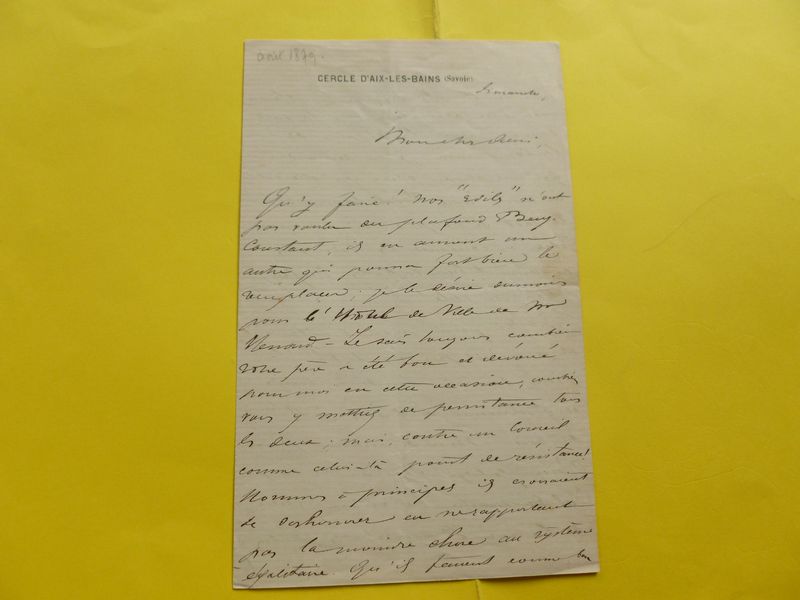 août 1879.
CERCLE D'AIX-LES-BAINS (Savoie)
Dimanche,
Mon cher ami,
Qu'y faire! Nos "Ediles" n'ont
pas voulu du plafond Benj.
Constant, ils en auront un
autre qui pourra fort bien le
remplacer; je le désire
pour l'Hôtel de Ville de
Je sais toujours combien
votre père a été bon et dévoué
pour moi en cette occasion, combien
vous y mettiez de persistance tous
les deux; mais, contre un Conseil
comme celui-là point de résistance!
Hommes à principes ils croiraient
se déshonorer en ne rapportant
pas la moindre chose au système
égalitaire. Qu'ils fassent comme bon